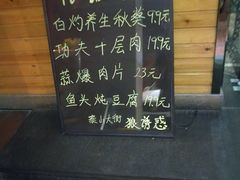 白灼养生秋葵9.9元
功夫十层肉19.9元
蒜爆肉片23元
鱼头炖豆腐19.9元
泰山大街 独诱惑